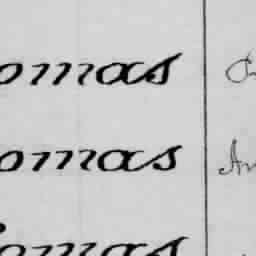 omas
omas
omas